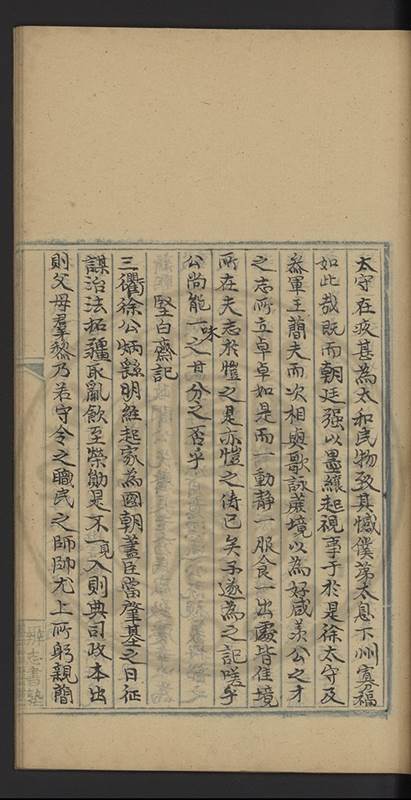 太守在疚甚為太和民物致其憾僕第太息下州寡福
如此哉既而朝廷强以墨縗起視事予於是徐太守及
叅軍王簡夫而次相與歌詠蔗境以為好咸羡公之才
之志所立卓卓如是而一動靜一服食一出處皆佳境
所在夫志於愷之是亦愷之儔已矣予遂為之記嗟乎
公尚能一味之甘分之否乎
堅白齋記
三衢徐公炳繇明經起家為國朝藎臣當肇基之日征
謀治法拓疆取亂飲至榮勛是不一見入則典司政本出
則父母羣黎乃若守令之職民之師帥尤上所躬親簡
志書塾